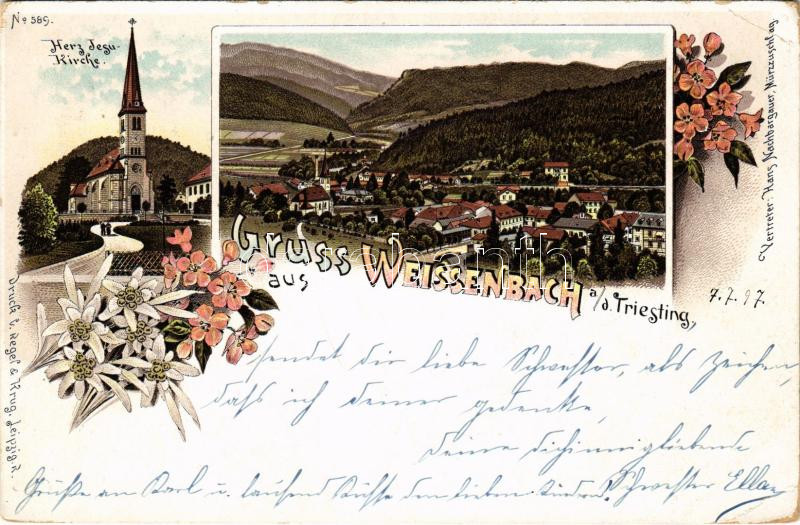 No 589.
Herz Jesu-
Kirche.
Gruss
aus WEISSENBACH a/d. Triesting,
7.7.97
Vertreter: Hans Nachbargauer, Mürzzuschlag.
Druck v. Regel & Krug, Leipzig-R.
sendet dir liebe Schwester, als Zeichen,
daß ich deiner gedenke,
deine dich innigliebende
Schwester Ella
Grüße an Karl u. tausend Küsse den lieben Kindern!